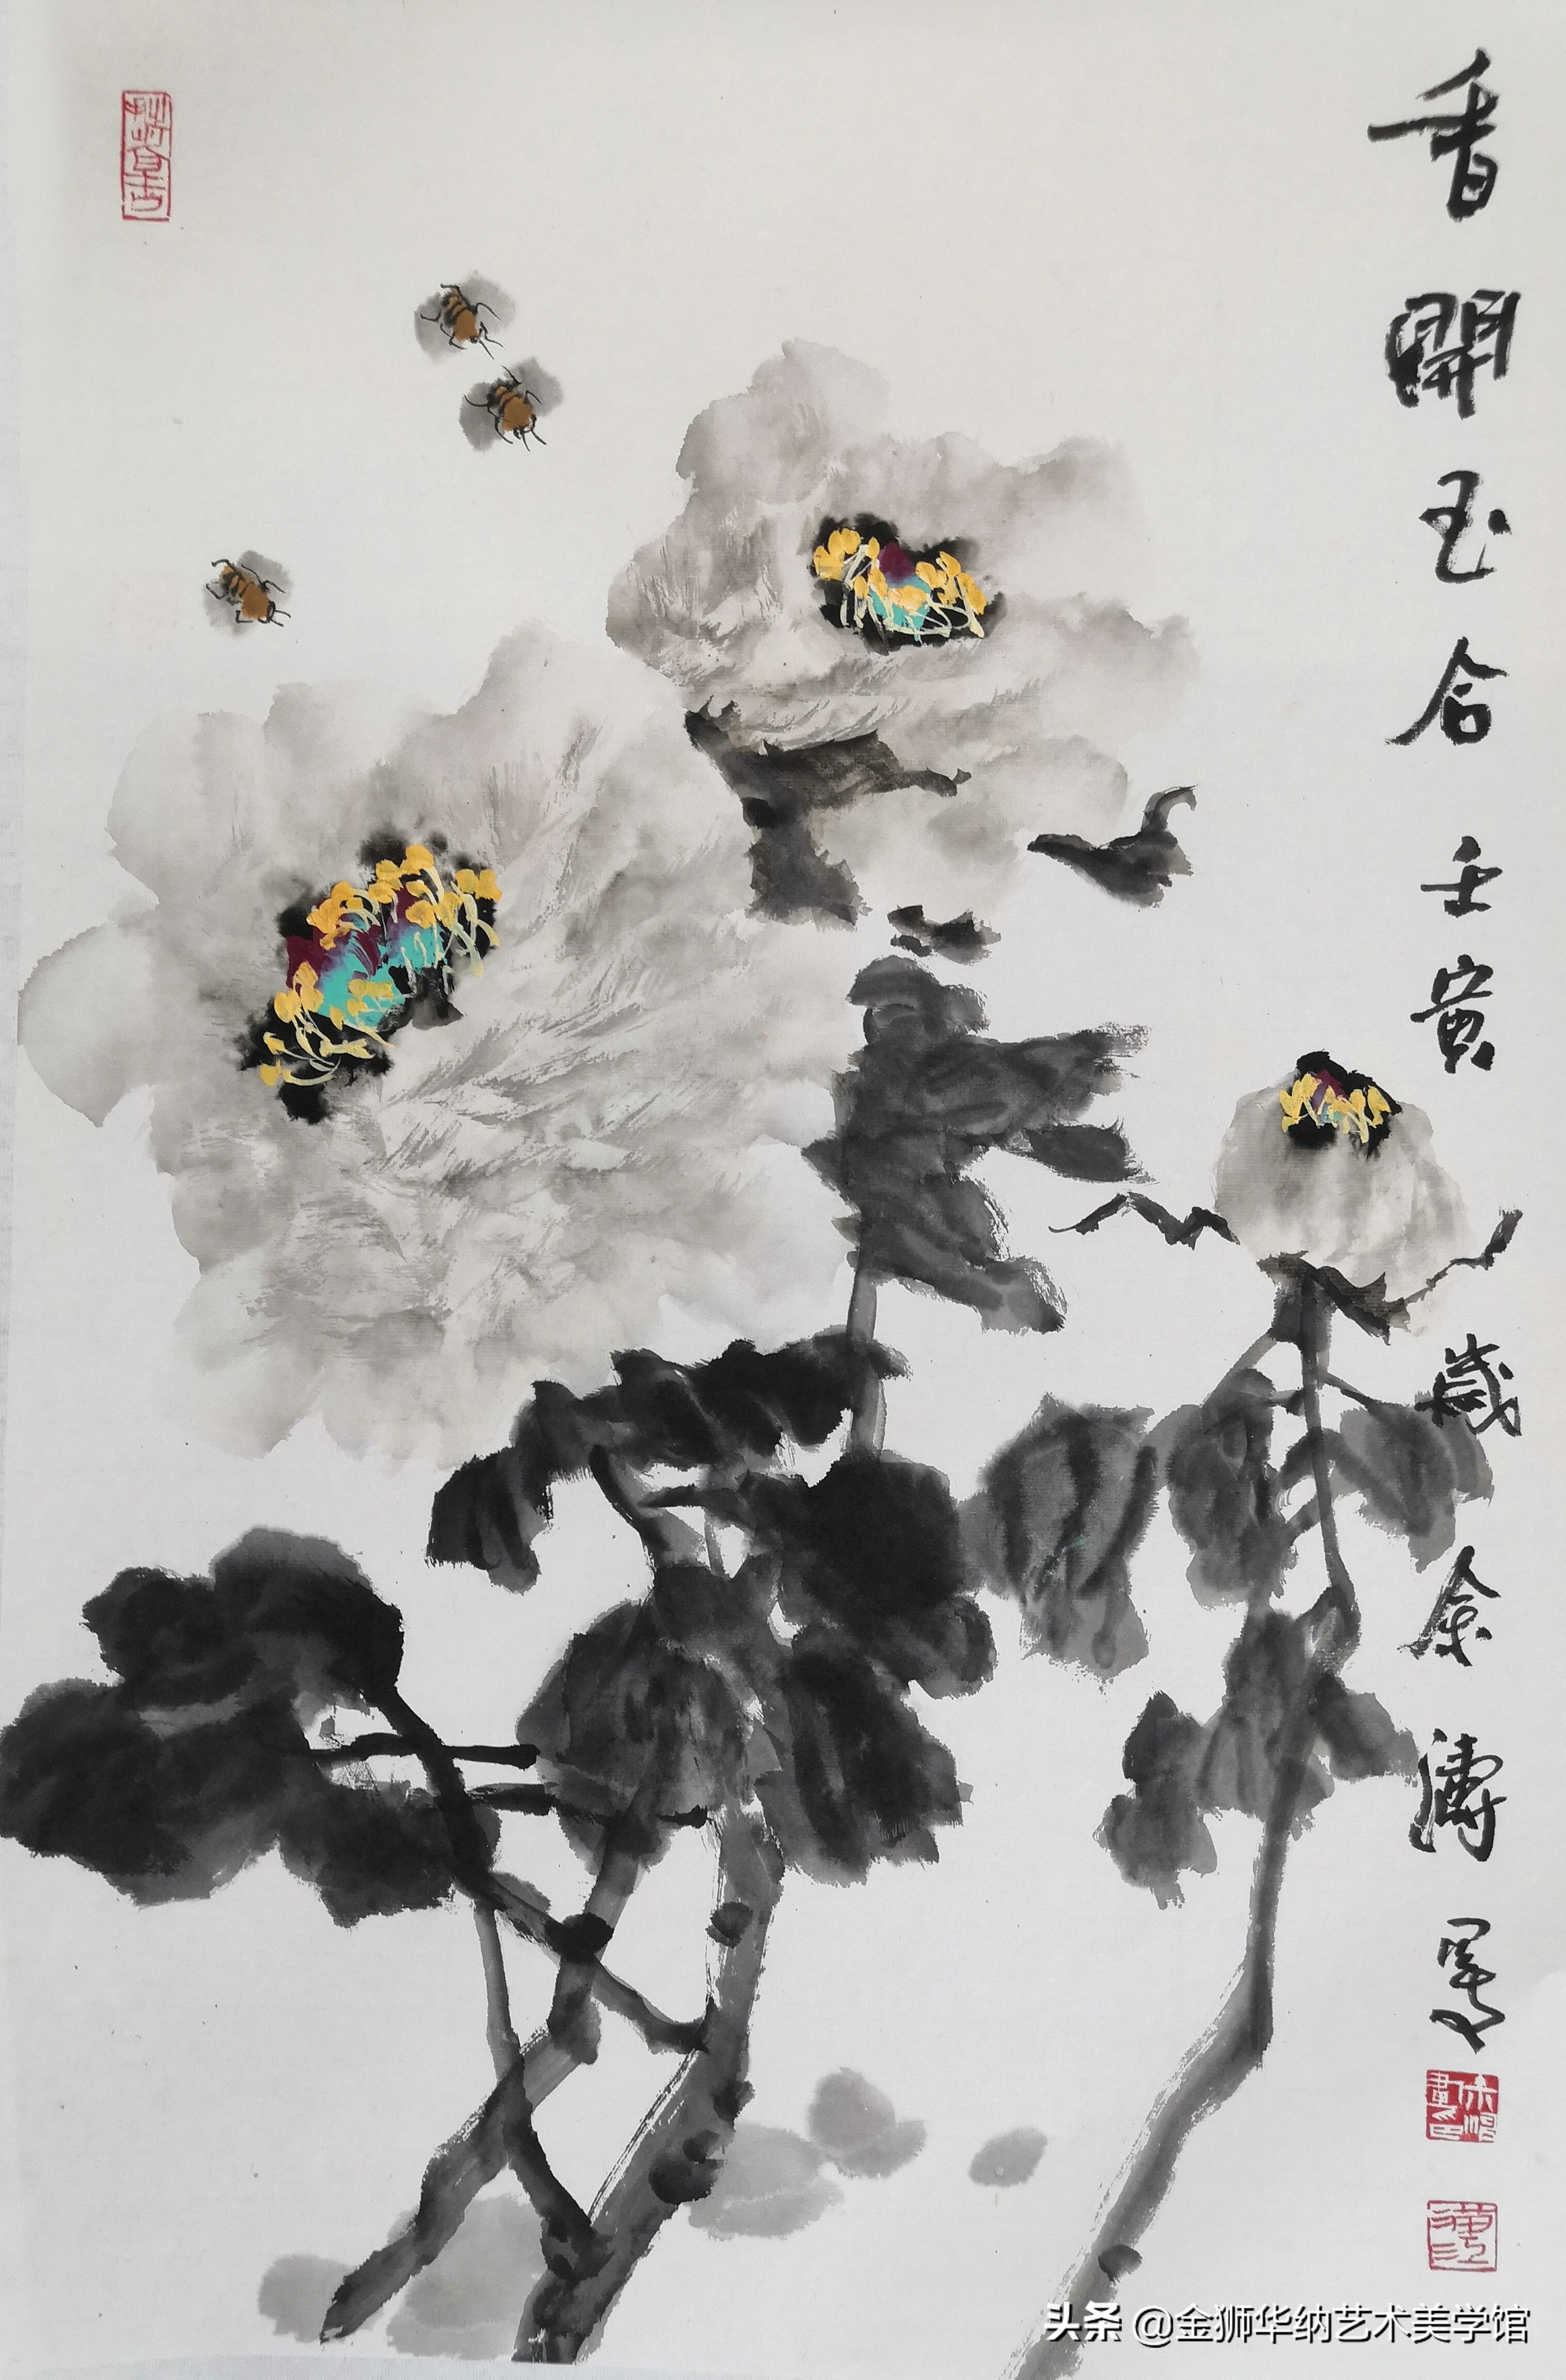 香開玉合 壬寅歲余濤写
头条 @金狮华纳艺术美学馆